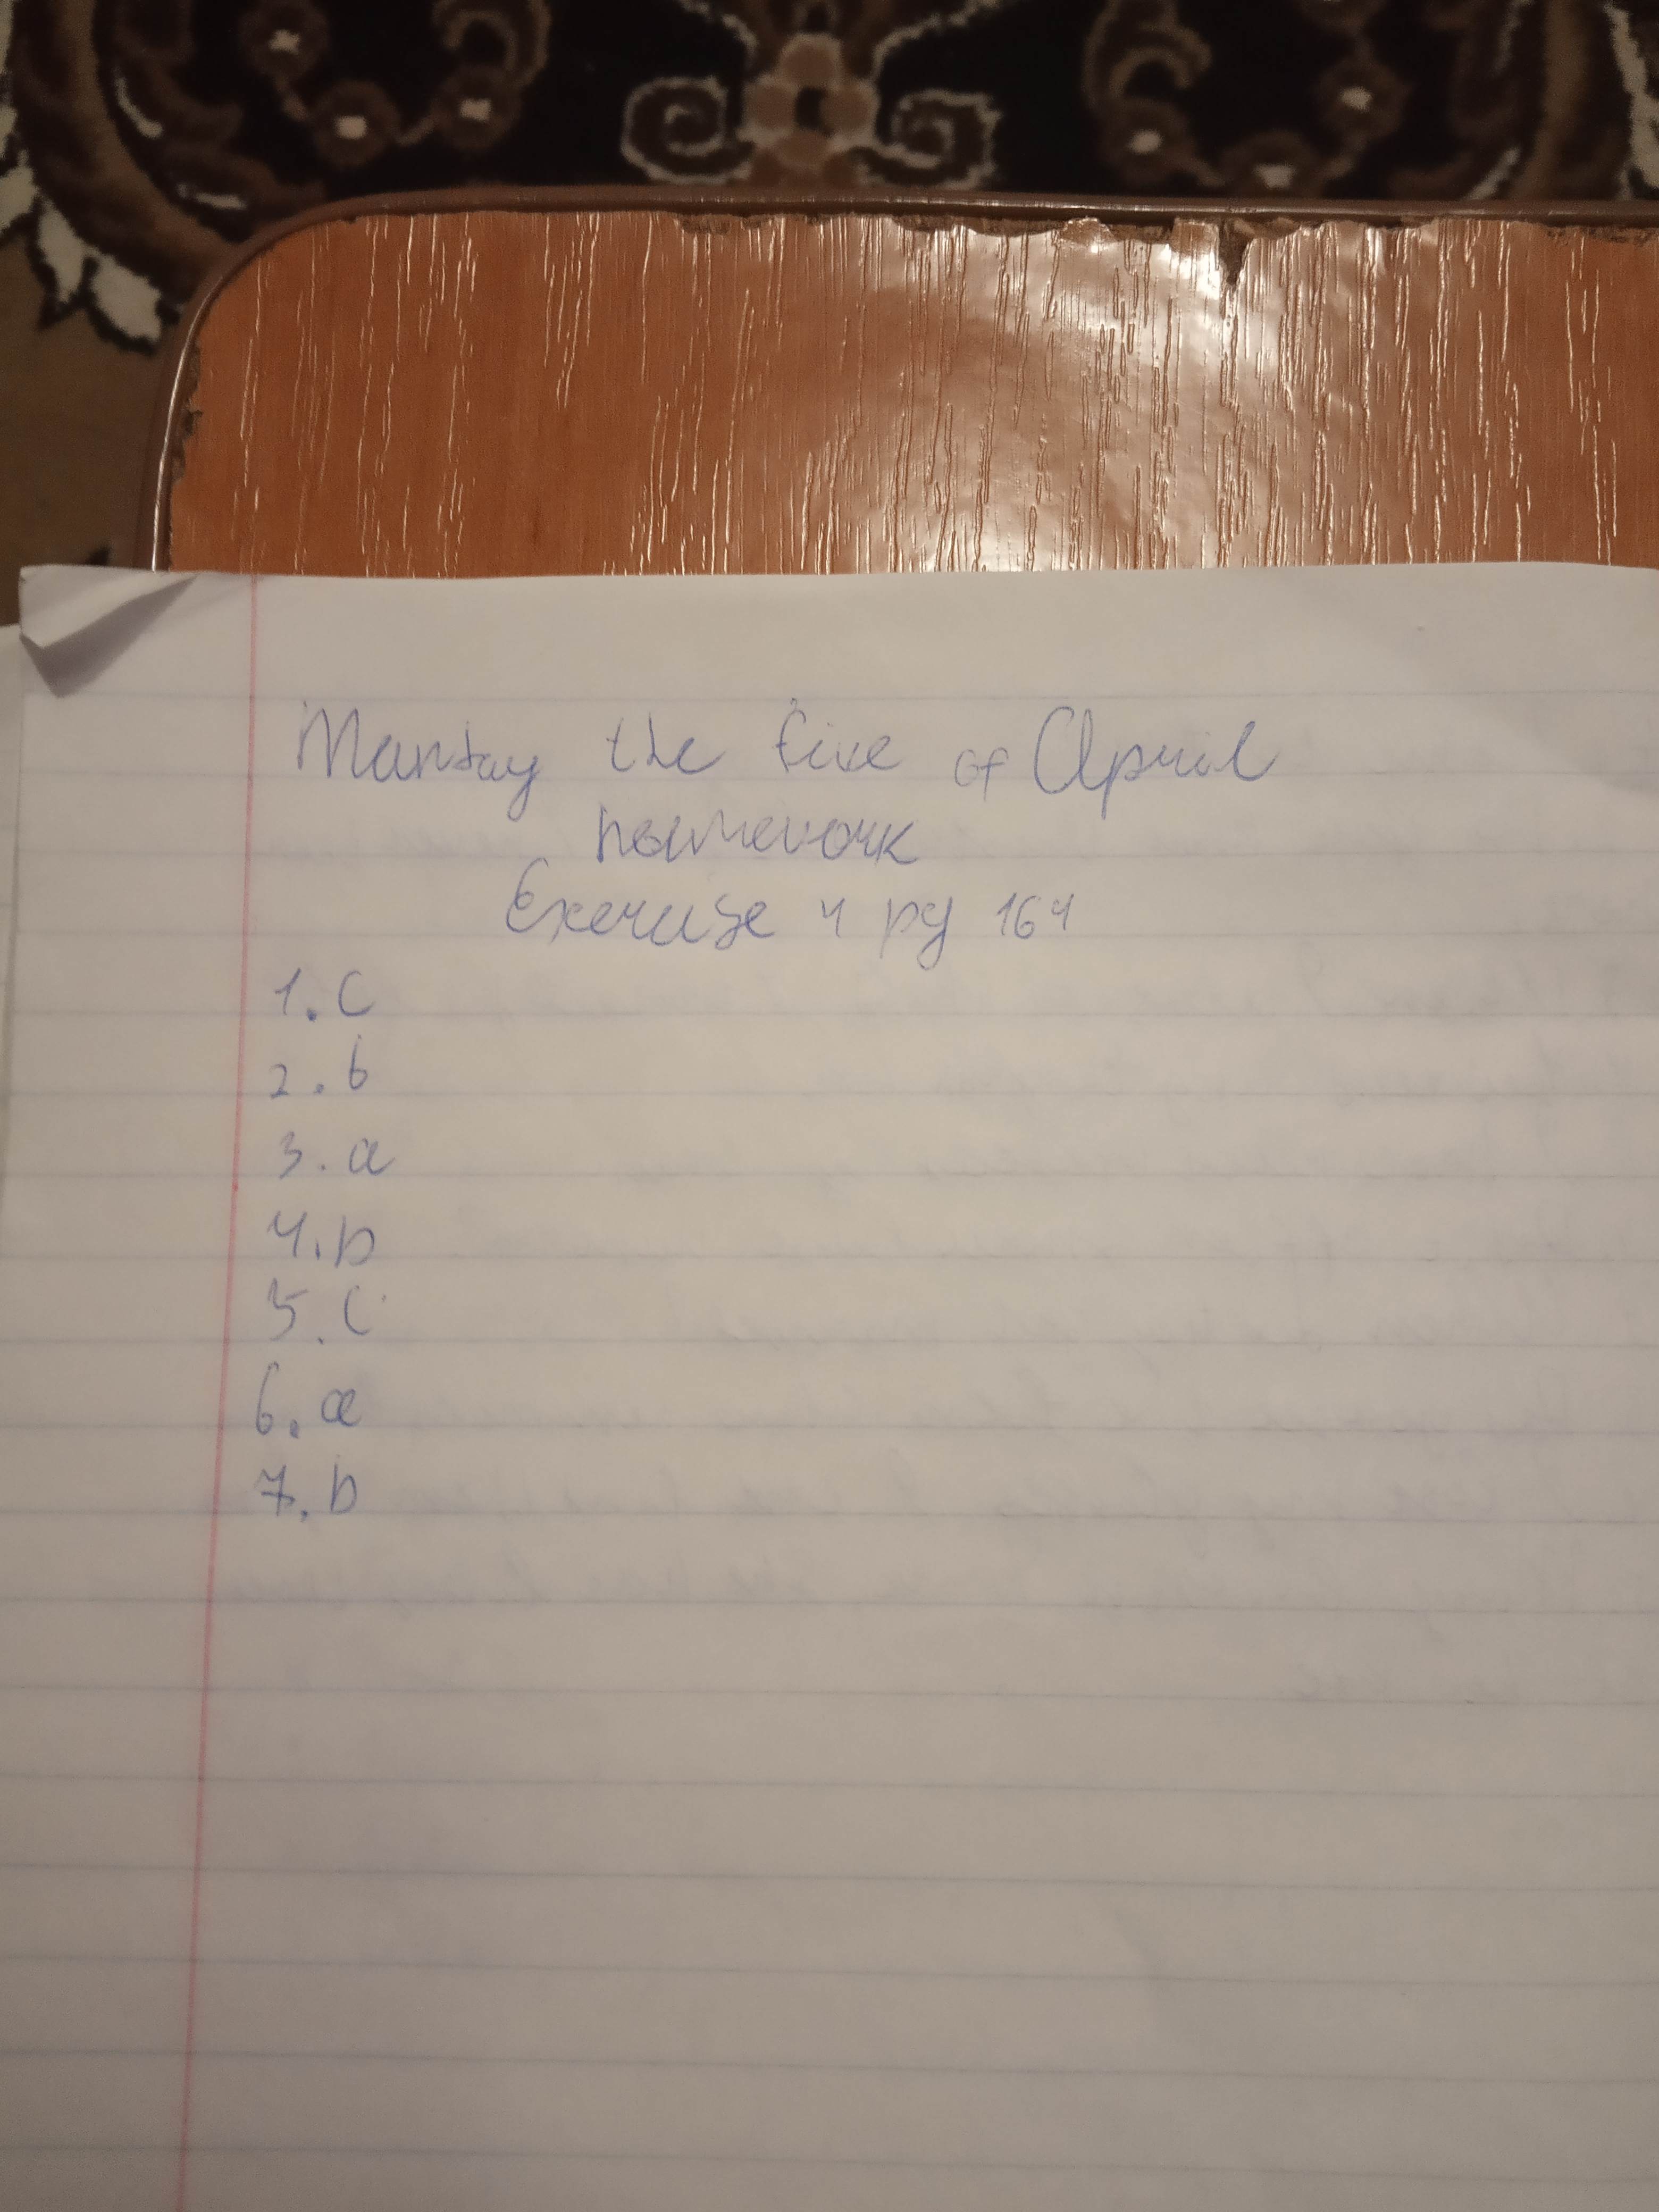 Manday the five of April
homework
Exercise 4 pg 164
1. c
2. b
3. a
4. b
5. c
6. a
7. b